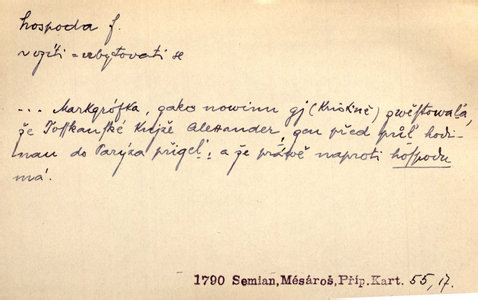 hospoda f.
vzíti = ubytovati se
... Markgrófka, gako nowinu gj (Kristině) zwěstowala,
že Tosskanské Kníže Alexander, gen před půl hodi-
nau do Paryža přigel: a že práwě naproti hóspodu
má.
1790 Semian, Mésároš, Příp. Kart. 55, 17.